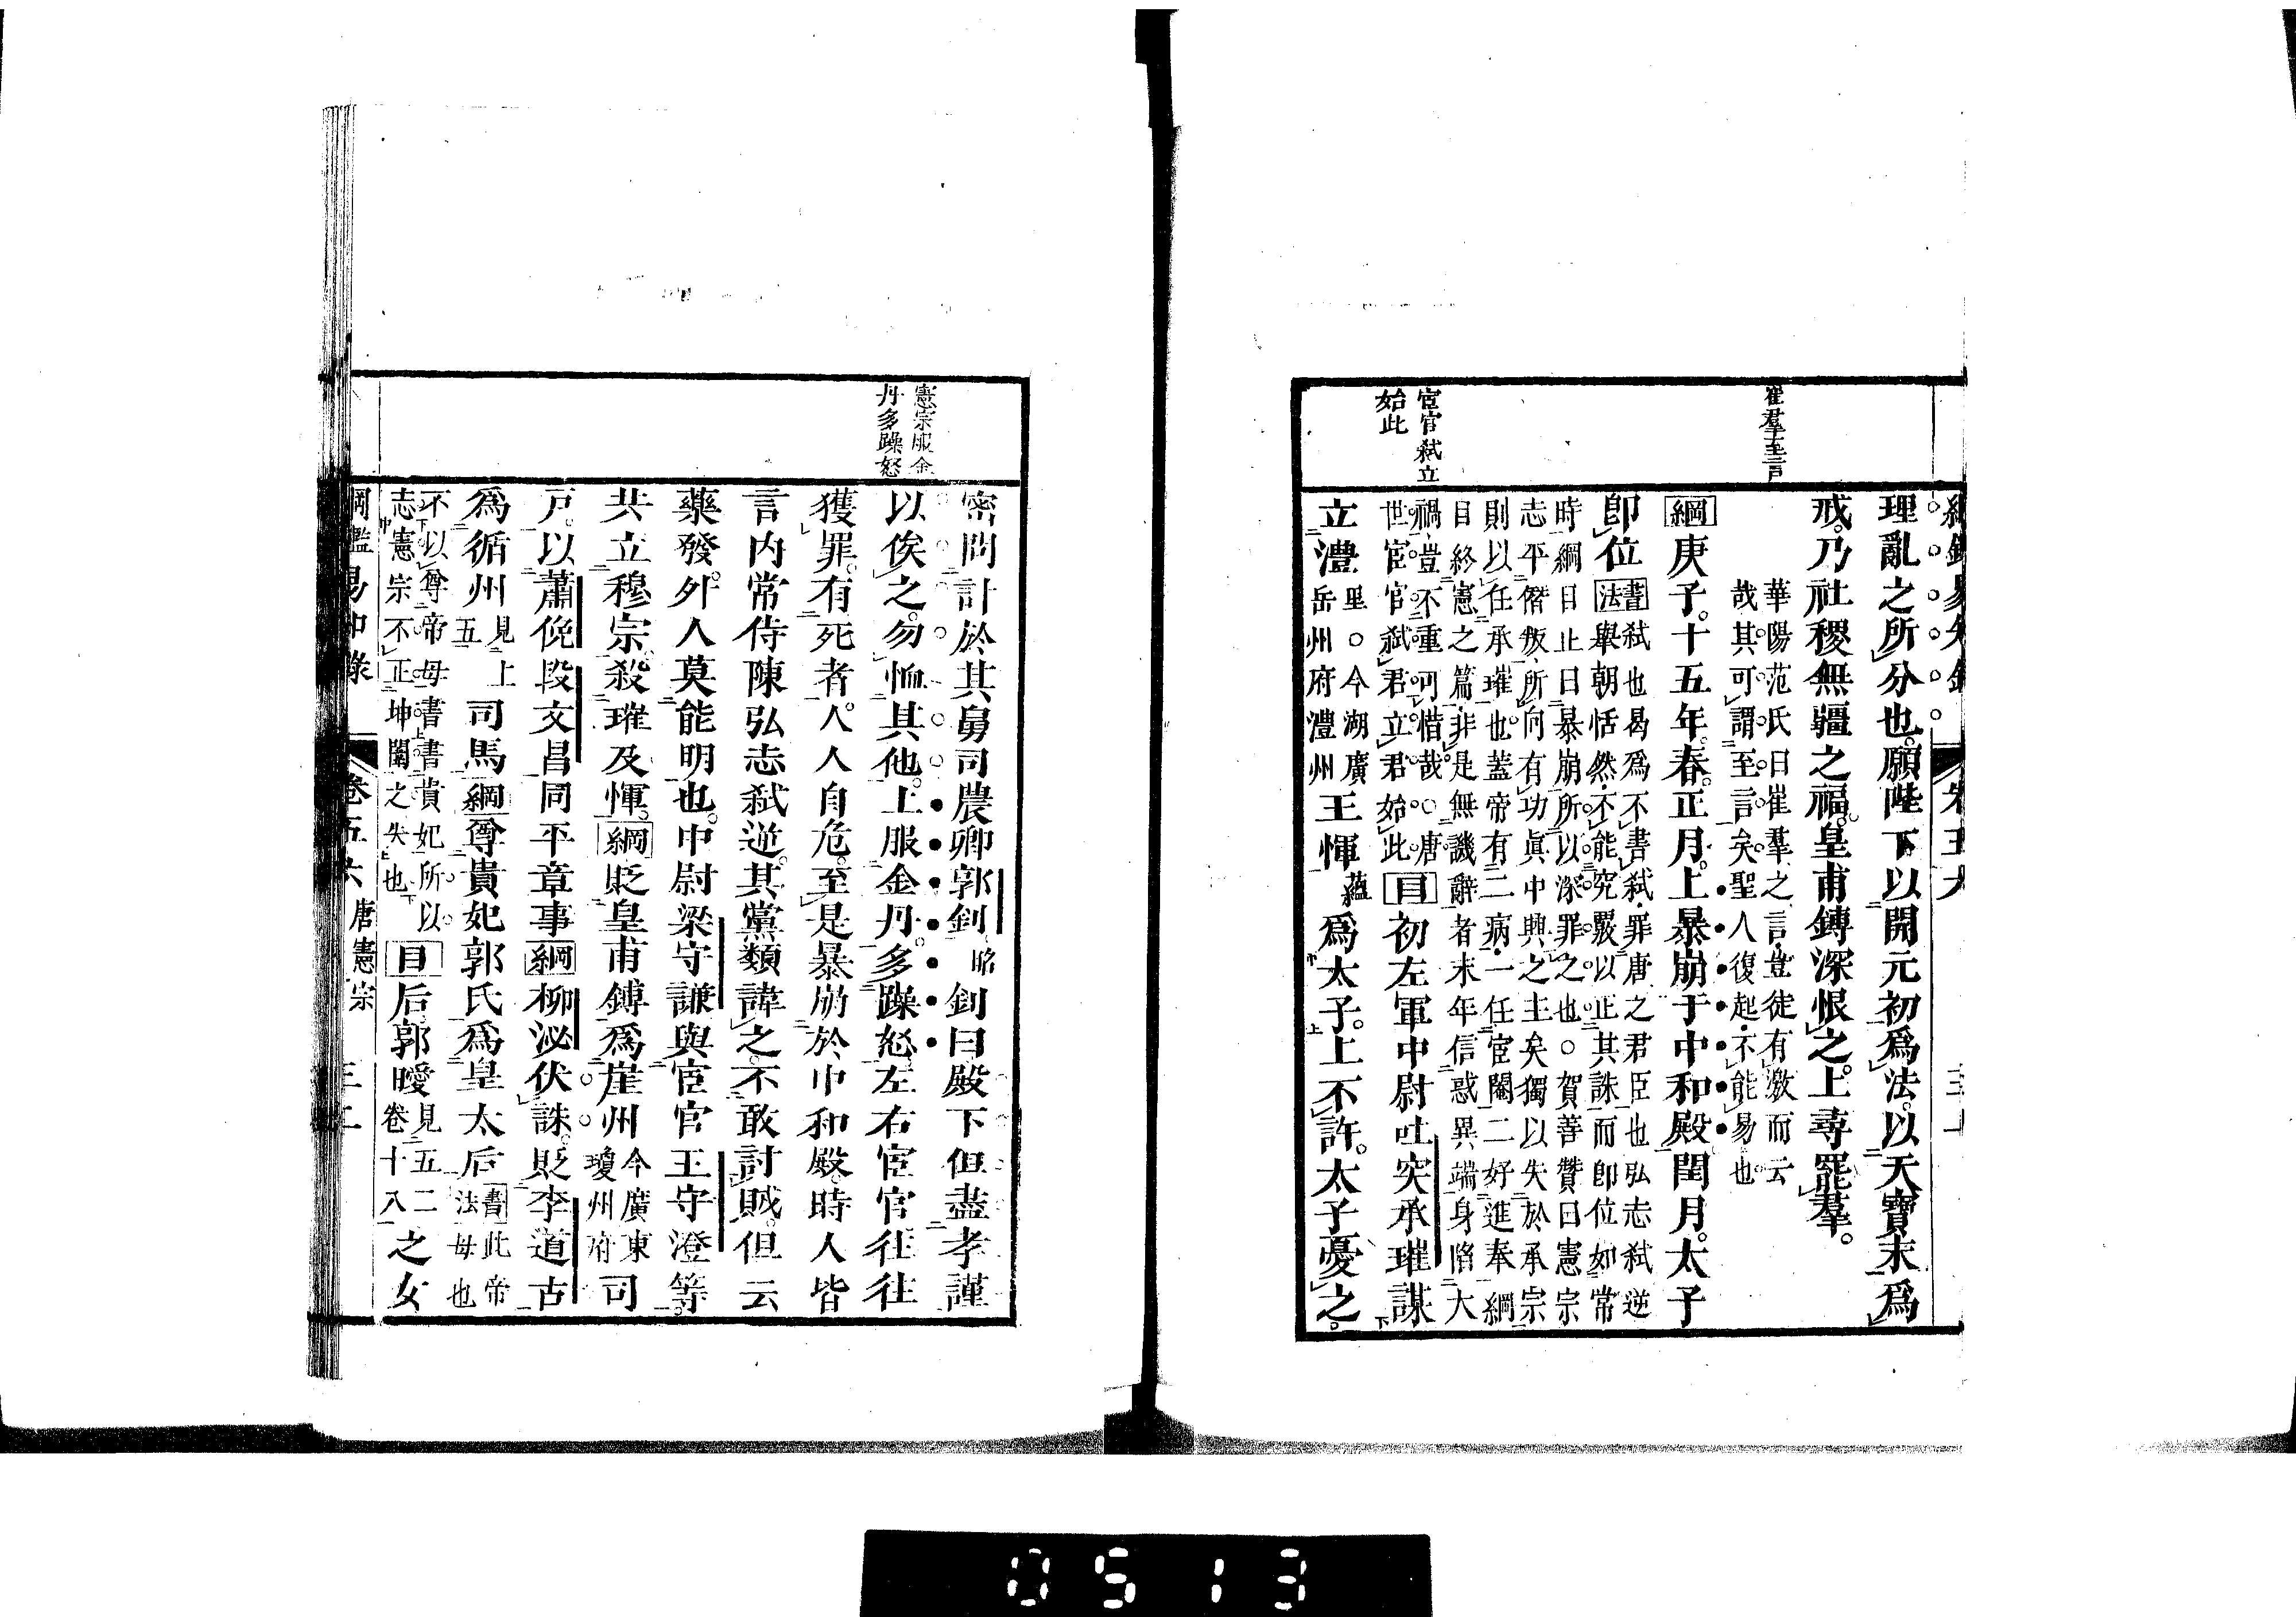 崔羣至言
宦官弑立
始此
理亂之所分也。願陛下以開元初爲法。以天寶末爲
戒。乃社稷無疆之福。皇甫鎛深恨之。上尋罷羣。
華陽范氏曰崔羣之言豈徒有激而云
哉其可謂至言矣聖人復起不能易也
綱庚子。十五年。春。正月。上暴崩于中和殿。閏月。太子
卽位
書弑也曷爲不書弑罪唐之君臣也弘志弑逆
法舉朝恬然不能究覈以正其誅而卽位如常
時綱目止曰暴崩所以深罪之也○賀善贊曰憲宗
志平僭叛所向有功眞中興之主矣獨以失於承宗
則以任承璀也蓋帝有二病一任宦閹二好進奉綱
目終憲之篇非是無譏辭者末年信惑異端身陷大
禍豈不重可惜哉○唐
世宦官弑君立君始此
目初左軍中尉吐突承璀謀
立澧
里○今湖廣
岳州府澧州
王惲
蘊
爲太子。上不許。太子憂之。
憲宗服金
丹多躁怒
密問計於其舅司農卿郭釗
昭
釗曰殿下但盡孝謹
以俟之。勿恤其他。上服金丹。多躁怒。左右宦官往往
獲罪。有死者。人人自危。至是暴崩於中和殿。時人皆
言内常侍陳弘志弑逆。其黨類諱之。不敢討賊。但云
藥發。外人莫能明也。中尉梁守謙與宦官王守澄等。
共立穆宗。殺璀及惲。綱貶皇甫鎛爲崖州
今廣東
瓊州府
司
戸。以蕭俛段文昌同平章事綱柳泌伏誅。貶李道古
爲循州
見上
五
司馬綱尊貴妃郭氏爲皇太后
書此帝
法母也
不以尊帝母書書貴妃所以
志憲宗不正坤闈之失也
目后郭曖
見五二
卷十八
之女
綱鑑易知錄 卷五六 唐憲宗
0513